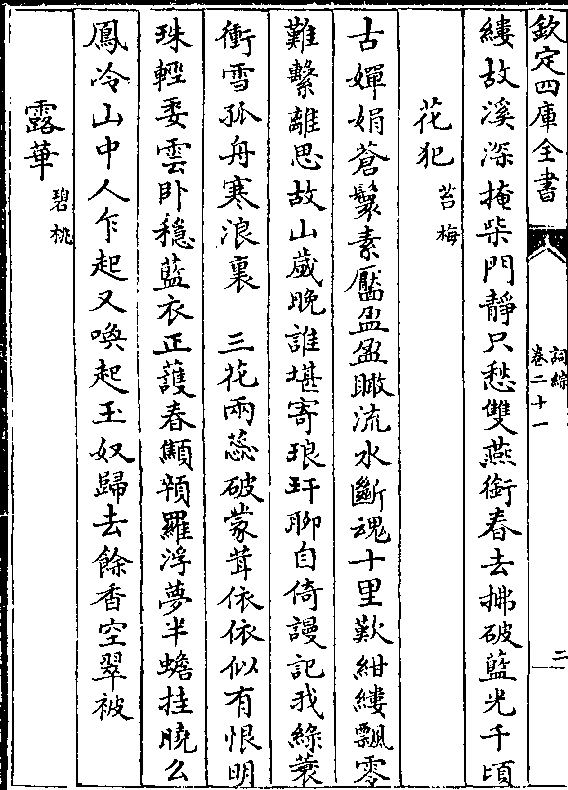 欽定四庫全書
詞綜
卷二十一
二
縷故溪深掩柴門靜只愁雙燕銜春去拂破藍光千頃
花犯
苔梅
古嬋娟蒼鬟素靨盈盈瞰流水斷魂十里歎紺縷飄零
難繫離思故山歲晚誰堪寄琅玕聊自倚謾記我綠蓑
衝雪孤舟寒浪裏　三花兩蕊破蒙茸依依似有恨明
珠輕委雲卧穩藍衣正護春顦顇羅浮夢半蟾挂曉么
鳳冷山中人乍起又喚起玉奴歸去餘香空翠被
露華
碧桃